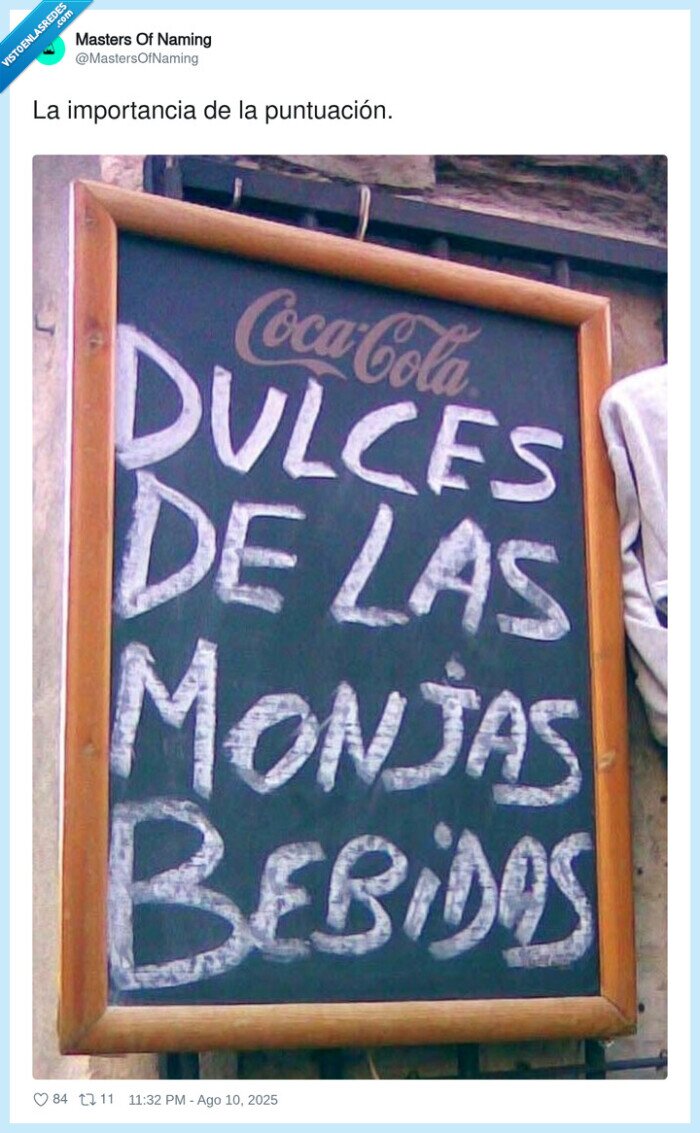 VISTOENLASREDES
.com
Masters Of Naming
@MastersOfNaming
La importancia de la puntuación.
Coca-Cola
DULCES
DE LAS
MONJAS
BEBIDAS
84 11 11:32 PM - Ago 10, 2025